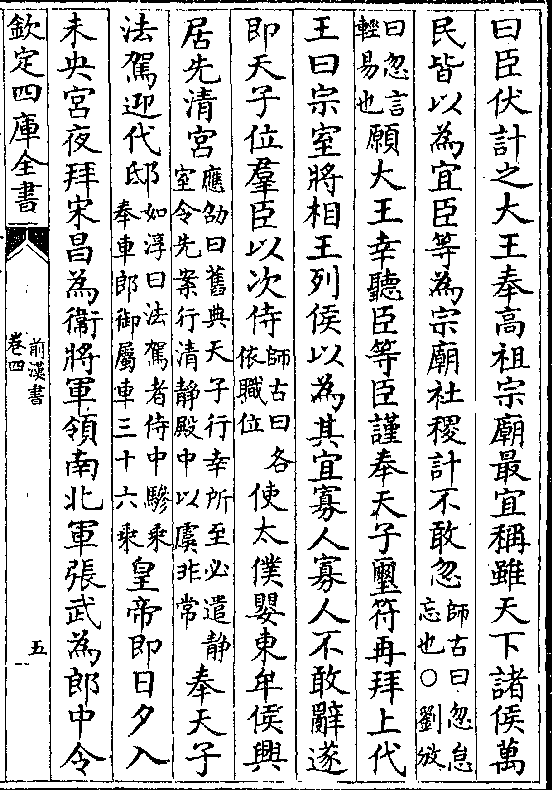 曰臣伏計之大王奉高祖宗廟最宜稱雖天下諸侯萬
民皆以為宜臣等為宗廟社稷計不敢忽師古曰忽怠忘也○劉攽
曰忽言輕易也願大王幸聽臣等臣謹奉天子璽符再拜上代
王曰宗室將相王列侯以為其宜寡人寡人不敢辭遂
即天子位羣臣以次侍師古曰各依職位使太僕嬰東牟侯興
居先清宫應劭曰舊典天子行幸所至必遣静室令先案行清静殿中以虞非常奉天子
法駕迎代邸如淳曰法駕者侍中驂乘奉車郎御屬車三十六乘皇帝即日夕入
未央宫夜拜宋昌為衞將軍領南北軍張武為郎中令
欽定四庫全書
前漢書
卷四
五